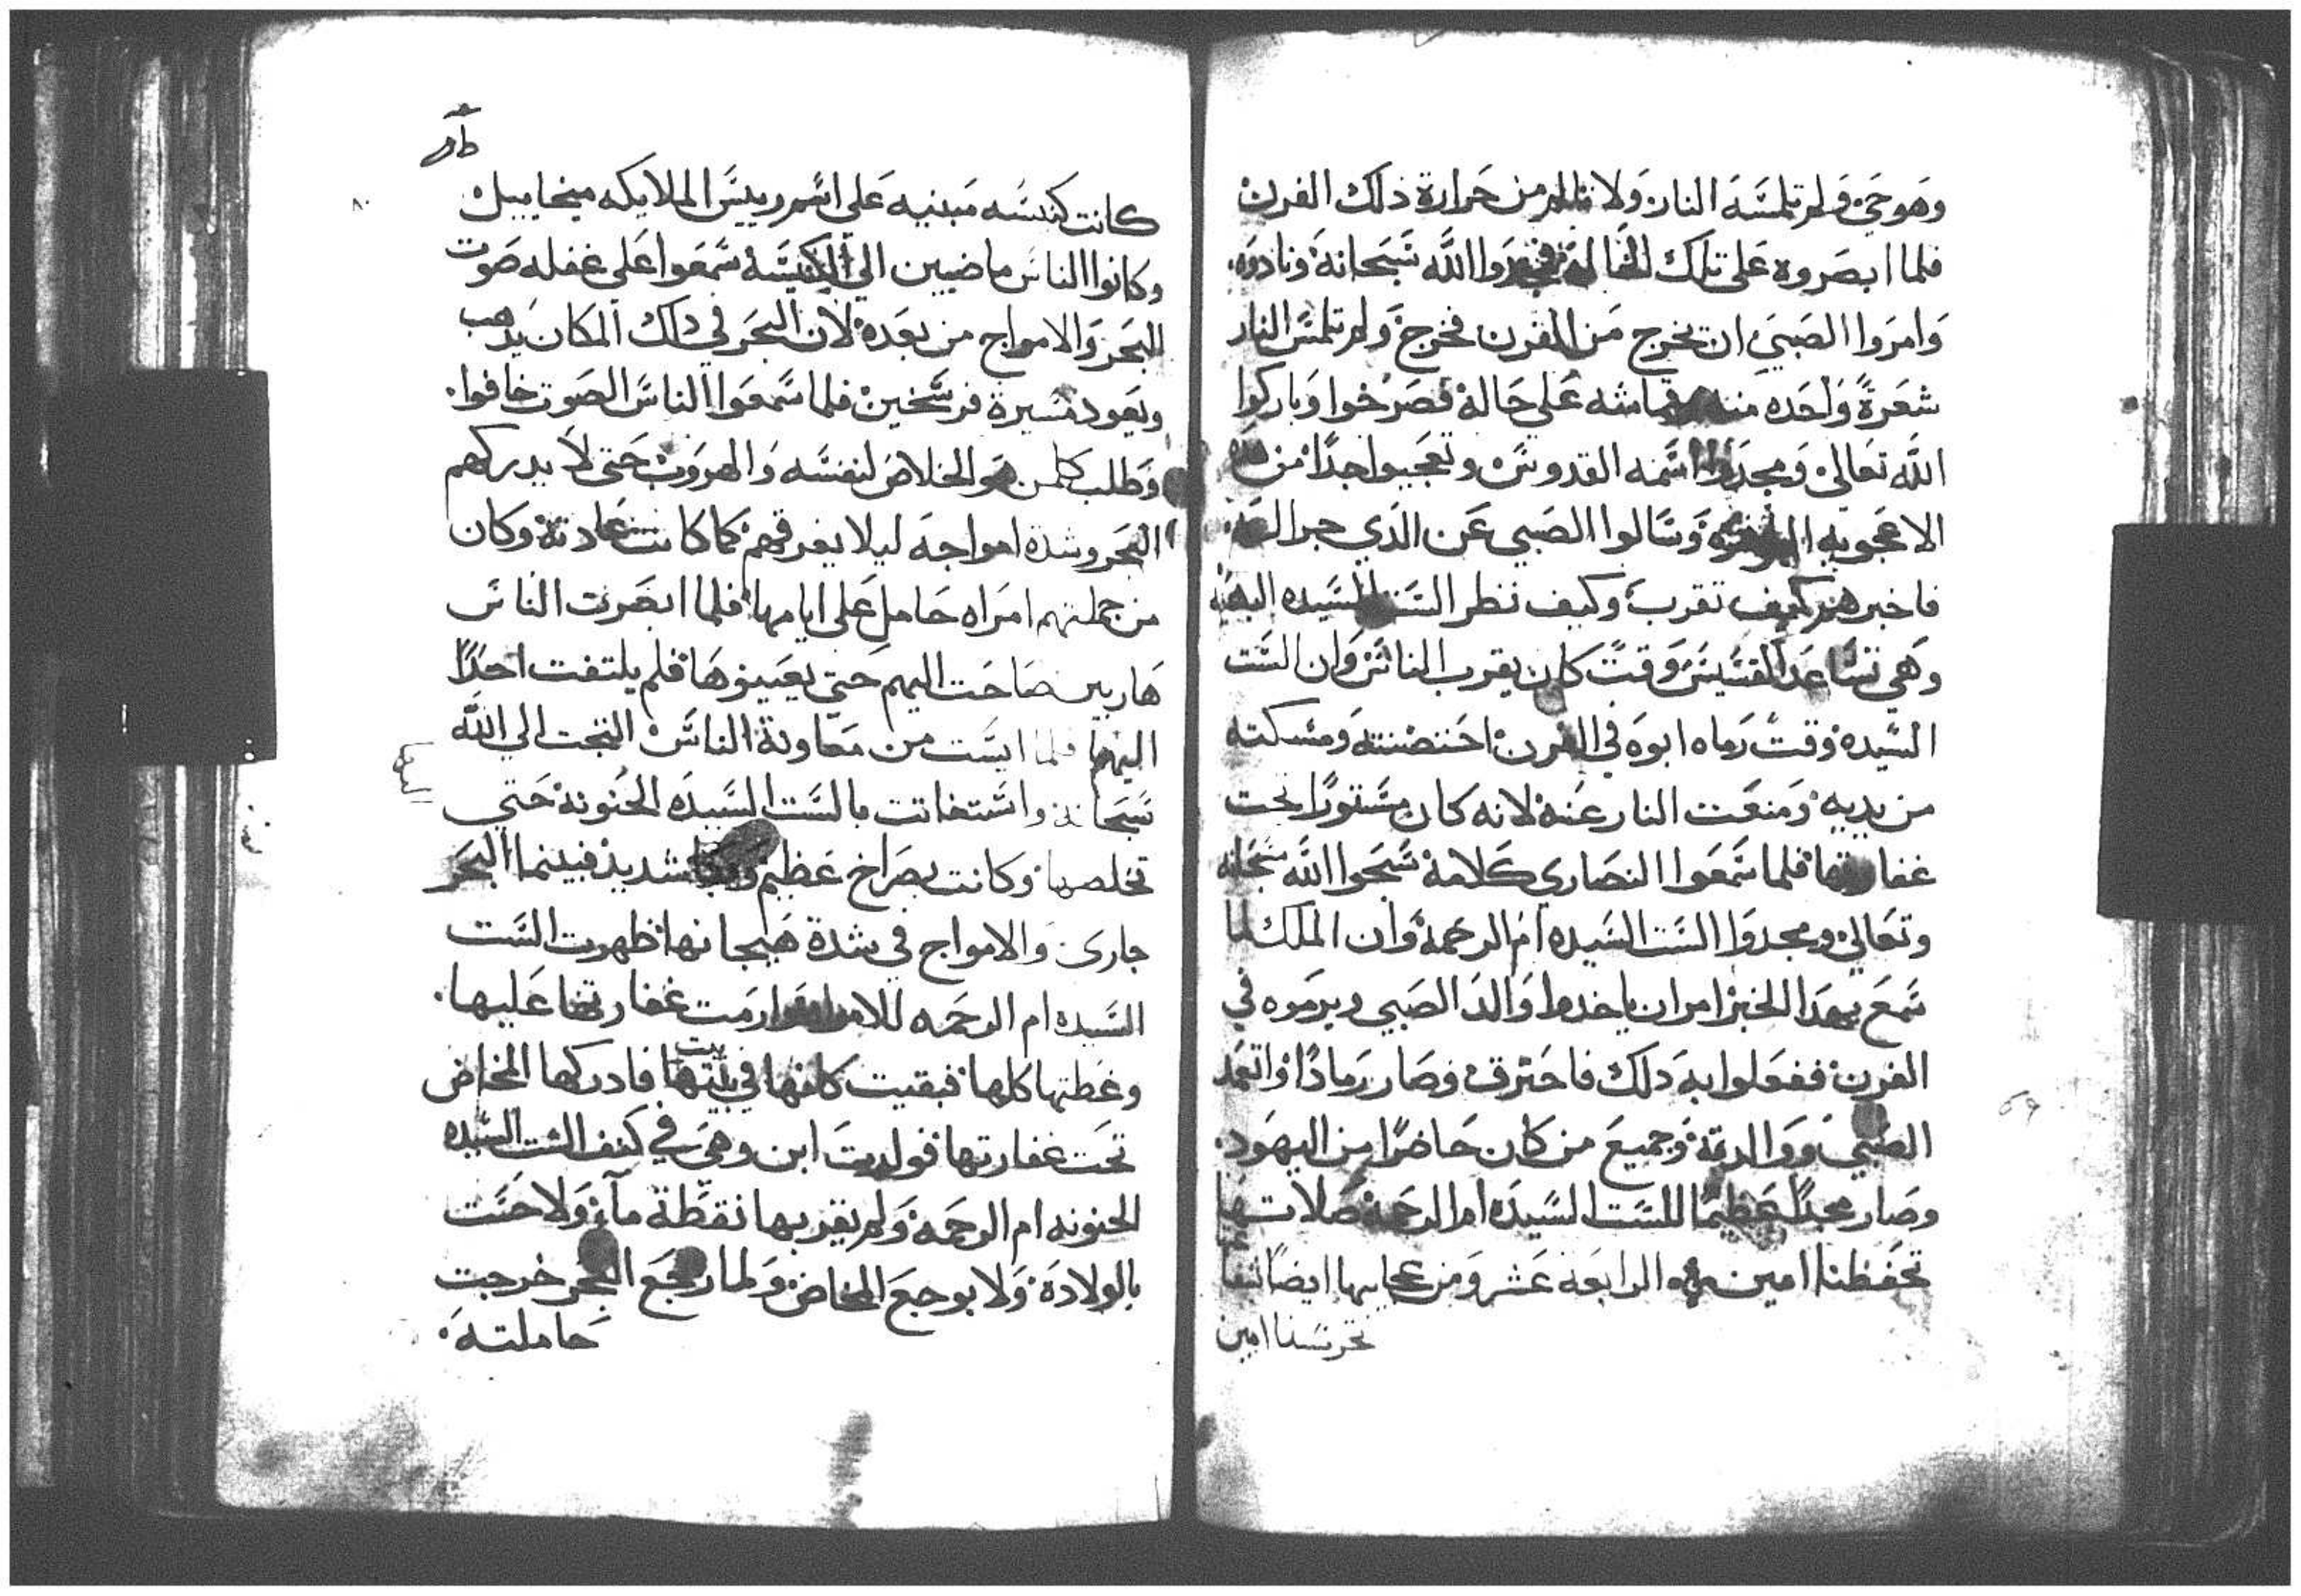 وهو حي ولم تلمسه النار ولا تالم من حرارة ذلك الفرن
فلما ابصروه على تلك الحالة فمجدوا الله سبحانه ونادوه
وامروا الصبي ان يخرج من الفرن فخرج ولم تلمس النار
شعرة واحده منه على حاله فصرخوا وباركوا
الله تعالي ومجدوا اسمه القدوس وتعجبوا جدا من هده
الاعجوبه وسالوا الصبي عن الدي جرا له
فاخبرهم كيف تقرب وكيف نظر الست السيده اليه
وهي تساعد القسيس وقت كان يقرب الناس وان الست
السيده وقت رماه ابوه في الفرن احتضنته ومسكته
من يديه ومنعت النار عنه لانه كان مستورا تحت
غفارتها فلما سمعوا النصاري كلامه سبحوا الله سبحانه
وتعالي ومجدوا الست السيده ام الرحمة وان الملك لما
سمع بهدا الخبر امر ان ياخدوا والد الصبي ويرموه في
الفرن ففعلوا به دلك فاحترق وصار رمادا واتعمد
الصبي ووالدته وجميع من كان حاضرا من اليهود
وصار مجدا عظيما للست السيده ام الرحمة صلاتها
تحفظنا امين الرابعه عشر ومن عجايبها ايضا
تحرسنا امين
كانت كنيسه مبنيه على اسم رييس الملايكه ميخاييل
وكانوا الناس ماضيين الي الكنيسة سمعوا على غفله صوت
البحر والامواج من بعده لان البحر في دلك المكان يدهب
ويعود مسيرة فرسخين فلما سمعوا الناس الصوت خافوا
وطلب كلمن هو الخلاص لنفسه والهروب حتي لا يدركهم
البحر وشدة امواجه ليلا يغرقهم كما كانت عادته وكان
من جملتهم امراه حامل على ايامها فلما ابصرت الناس
هاربين صاحت اليهم حتي يعينوها فلم يلتفت احدا
اليها فلما ايست من معاونة الناس التجت الي الله
سبحانه واستغاتت بالست السيده الحنونة حتي
تخلصها وكانت بصراخ عظيم شديد فبينما البحر
جاري والامواج في شدة هيجانها ظهرت الست
السيده ام الرحمه للامراه وارمت غفارتها عليها
وغطتها كلها فبقيت كانها في بيت بيتها فادركها المخاض
تحت غفارتها فولدت ابن وهي في كنف الست السيده
الحنونه ام الرحمه ولم يقربها نقطة مآء ولا حست
بالولادة ولا بوجع المخاض ولما رجع البحر خرجت
حاملته